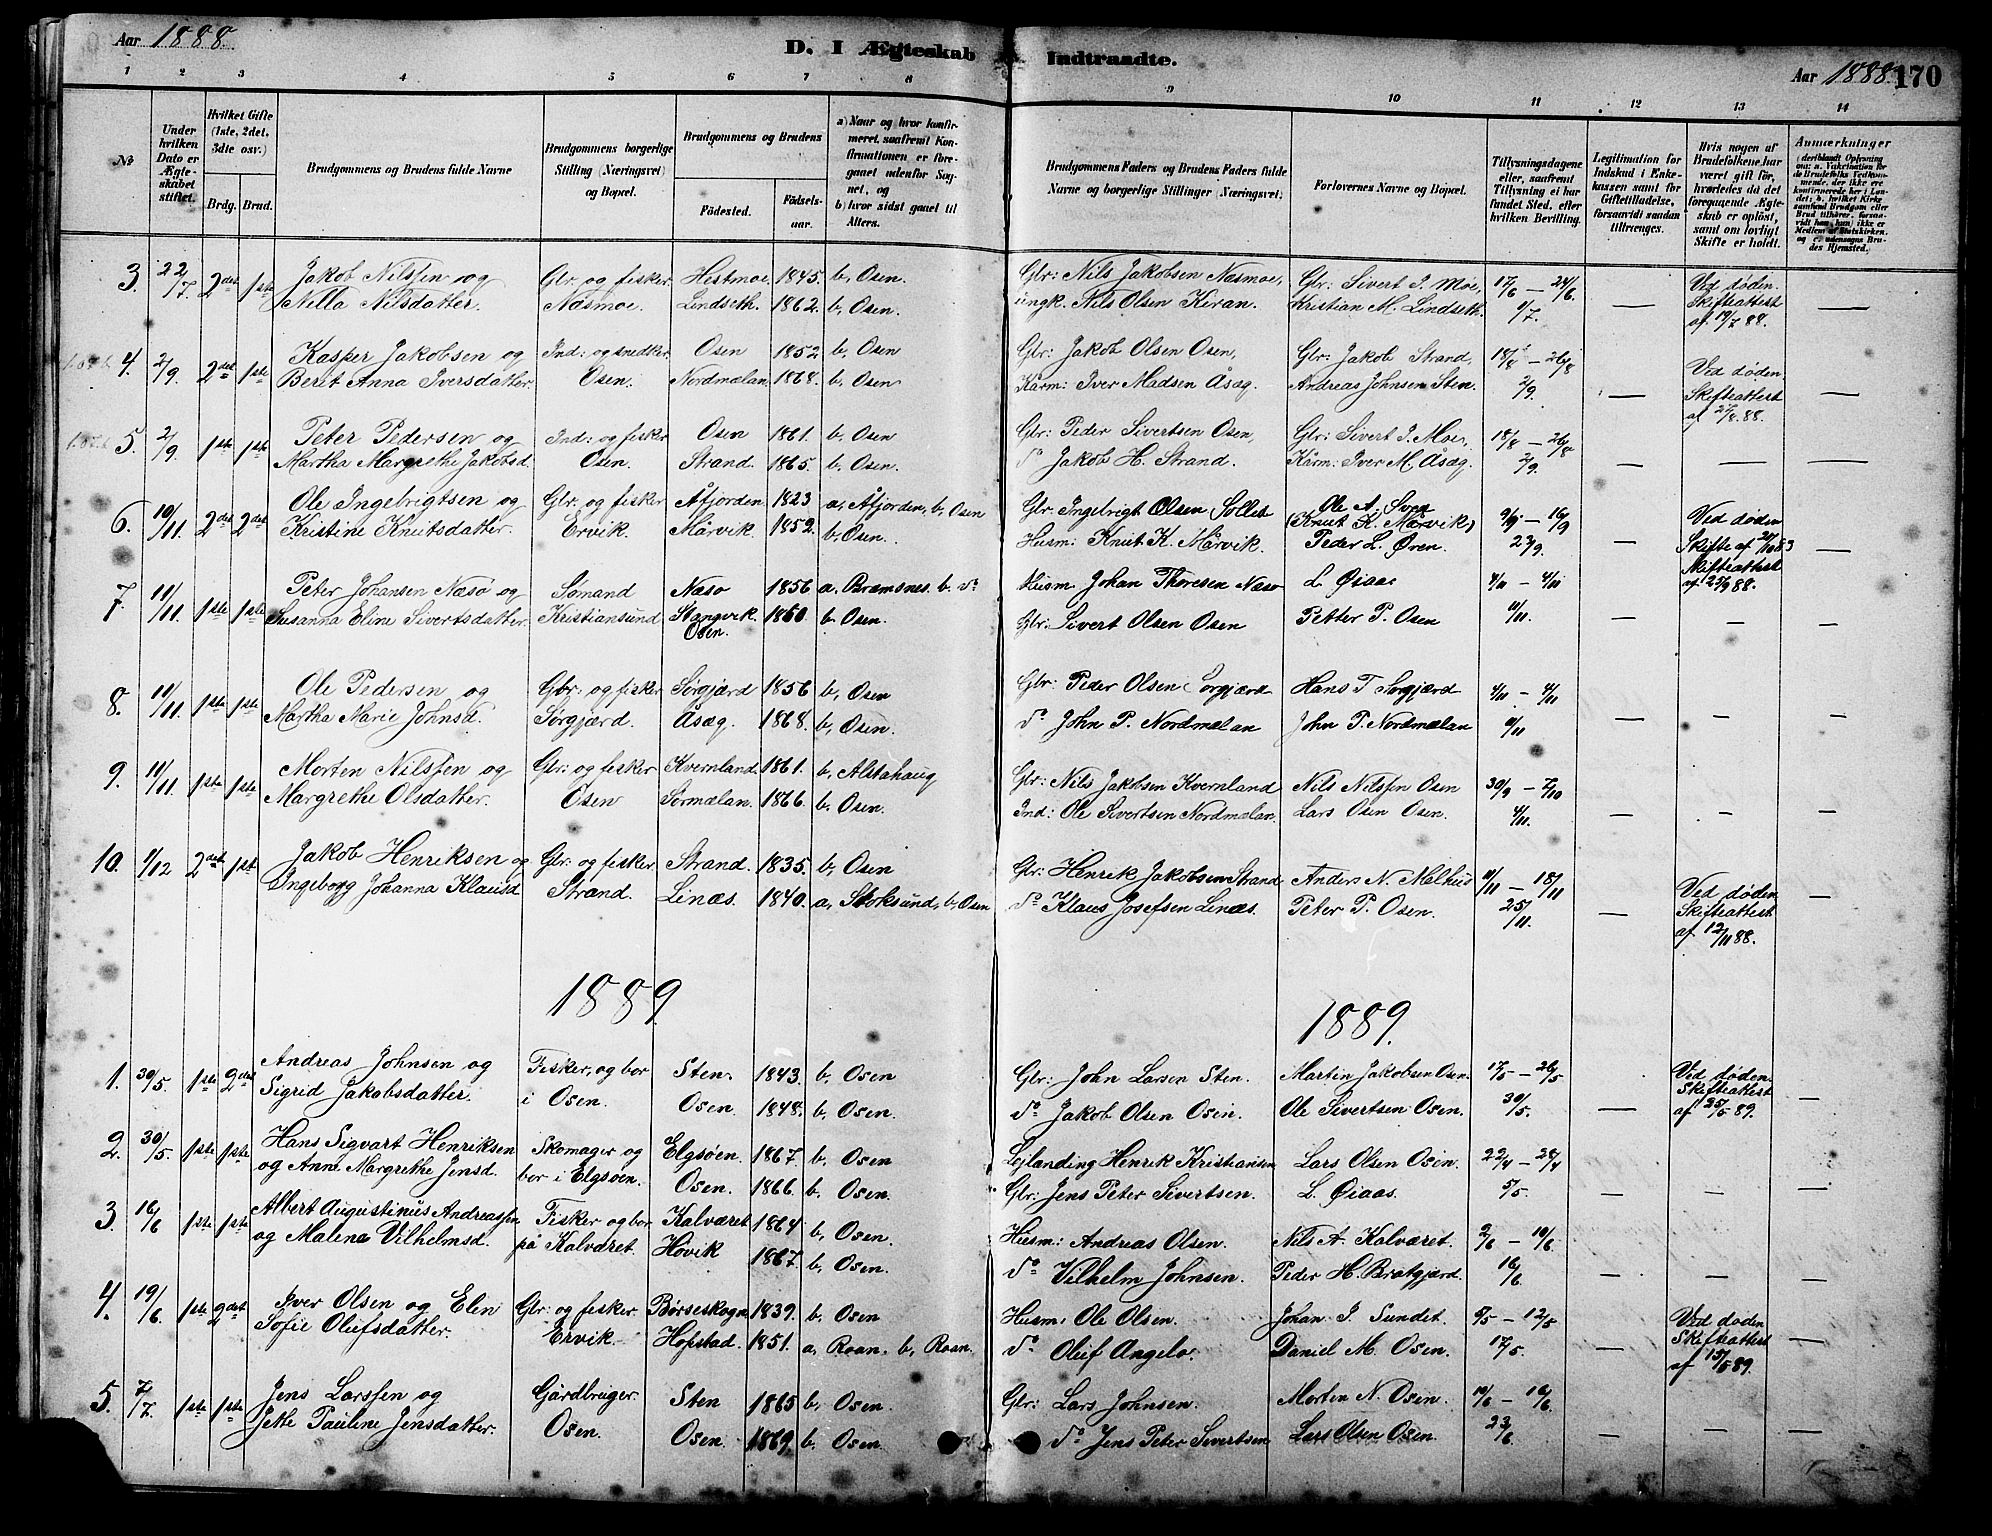 Aar 1888.
D. I Ægteskab Indtraadte.
Aar 1888. 170
1 2 3 4 5 6 7 8 9 10 11 12 13 14
No
Under hvilken Dato er Ægteskabet stiftet.
Hvilket Gifte (1ste, 2det, 3die osv.)
Brdg. Brud.
Brudgommens og Brudens fulde Navne
Brudgommens borgerlige Stilling (Næringsvei) og Bopæl.
Brudgommens og Brudens
Fødested. Fødselsaar.
a) Naar og hvor konfirmeret, saafremt Konfirmationen er foregaaet udenfor Sognet, og
b) hvor sidst gaaet til Alters.
Brudgommens Faders og Brudens Faders fulde Navne og borgerlige Stillinger (Næringsvei).
Forlovernes Navne og Bopæl.
Tillysningsdagene eller, saafremt Tillysning ei har fundet Sted, efter hvilken Bevilling.
Legitimation for Indskud i Enkekassen samt for Giftetilladelse, forsaavidt saadan tiltrænges.
Hvis nogen af Brudefolkene har været gift før, hvorledes da det foregaaende Ægteskab er opløst, samt om lovligt Skifte er holdt.
Anmærkninger
3. 22/7. 2det 1ste Jakob Nilssen og Gbr. og fisker Hestmoe 1845. b, Osen. Gbr: Nils Jakobsen Næsmoe, Gbr: Sivert J. Moe, 17/6 – 24/6 — Ved døden. —
Nella Nilsdatter. Næsmoe. Lindseth. 1862. b, Osen. ungk. Nils Olsen Kiran. Kristian M. Lindseth. 1/7. Skifteattest af 19/7 88.
4. 2/9. 2det 1ste Kasper Jakobsen og Ind: og snedker Osen 1852 b, Osen Gbr: Jakob Olsen Osen, Gbr: Jakob Strand, 18/8 – 26/8 Ved døden
Berit Anna Iversdatter. Osen. Nordmælan. 1868. b, Osen Kårm: Iver Madsen Åsæg. Andreas Johnsen Sten. 2/9. — Skifteattest af 27/8 88. —
5. 2/9. 1ste 1ste Peter Pedersen og Ind: og fisker Osen 1861. b, Osen Gbr: Peder Sivertsen Osen, Gbr: Sivert J. Moe, 18/8 – 26/8
Martha Margrethe Jakobsd. Osen. Strand. 1865. b, Osen. do Jakob H. Strand. Kårm: Iver M. Åsæg. 2/9. — — —
6. 10/11. 2det 2det Ole Ingebrigtsen og Gbr. og fisker Åfjorden 1823 a, Åfjorden, b, Osen Gbr. Ingebrigt Olsen Sollet Ole A. Sved 9/9 – 16/9 Ved døden
(Knut K. Mårvik)
Kristine Knutsdatter. Ervik. Mårvik. 1852. b, Osen. Husm: Knut K. Mårvik. Peder L. Øren. 23/9. — Skifte af 83 —
Skifteattest af 25/9 88.
7. 11/11. 1ste 1ste Peter Johansen Næsø og Sømand Næsø 1856 a. Bræmsnes. b. do Husm Johan Thoresen Næsø L. Øiaas 4/11 – 4/11
Susanna Eline Sivertsdatter. Kristiansund Stangvik. Osen. 1860. b. Osen. Gbr: Sivert Olsen Osen Petter P. Osen 11/11. — — —
8. 11/11. 1ste 1ste Ole Pedersen og Gbr: og fisker Sørgjærd 1856 b, Osen Gbr: Peder Olsen Sørgjærd Hans T Sørgjærd 4/11 – 4/11
Martha Marie Johnsd. Sørgjærd. Åsæg. 1868. b, Osen. do John P. Nordmælan John P. Nordmælan 11/11 — — —
9. 11/11. 1ste 1ste Morten Nilssen og Gbr: og fisker Kvernland 1861. b, Alstahaug Gbr: Nils Jakobsen Kvernland Nils Nilssen Osen 30/9 – 7/10
Margrethe Olsdatter. Osen Sørmælan. 1866. b. Osen. Ind: Ole Sivertsen Nordmælan. Lars Osen Osen. 4/11. — — —
10. 1/12 2det 1ste Jakob Henriksen og Gbr: og fisker Strand. 1835. b, Osen Gbr. Henrik Jakobsen Strand Anders N. Melhus 11/11 – 18/11 Ved døden
Ingeborg Johanna Klausd Strand. Linæs. 1840. a, Stoksund, b, Osen do Klaus Josefsen Linæs. Peter P. Osen. 25/11. — Skifteattest af 12/11 88. —
1889. 1889.
1. 30/5. 1ste 2det Andreas Johnsen og Fisker, og bor Sten. 1843. b, Osen Gbr: John Larsen Sten. Martin Jakobsen Osen. 17/5 – 26/5 Ved døden.
Sigrid Jakobsdatter. i Osen. Osen. 1848. b, Osen. do Jakob Olsen Osen. Ole Sivertsen Osen. 30/5. — Skifteattest af 25/5 89. —
2. 30/5. 1ste 1ste Hans Sigvart Henriksen Skomager og Elgsøen. 1867. b, Osen Lejlænding Henrik Kristiansen Lars Olsen Osen. 22/4 – 28/4
og Anne Margrethe Jensd. bor i Elgsøen. Osen. 1866. b. Osen. Gbr: Jens Peter Sivertsen. L. Øiaas. 5/5. — — —
3. 16/6 1ste 1ste Albert Augustinus Andreassen Fisker og bor Kalværet 1864 b, Osen. Husm: Andreas Olsen. Nils A. Kalværet. 2/6 – 10/6.
og Malena Vilhelmsd. på Kalværet. Hovik 1867. b, Osen. do Vilhelm Johnsen. Peder H. Bratgjærd. 16/6. — — —
4. 19/6. 1ste 2det Iver Olsen og Elen Gbr: og fisker Børseskogn 1839. b, Osen Husm: Ole Olsen. Johan J. Sundet. 5/5 – 12/5 Ved døden
Sofie Olufsdatter. Ervik. Hopstad. 1851. a, Roan. b, Roan. do Oluf Angelo. Daniel M. Osen. 17/5. — Skifteattest af 15/5 89. —
5. 7/7. 1ste 1ste Jens Larssen og Gårdbruger. Sten 1865 b, Osen. Gbr: Lars Johnsen. Morten N. Osen. 10/6 – 16/6.
Jette Pauline Jensdatter. Osen. Osen. 1869. b, Osen. do Jens Peter Sivertsen Lars Olsen Osen. 23/6. — — —